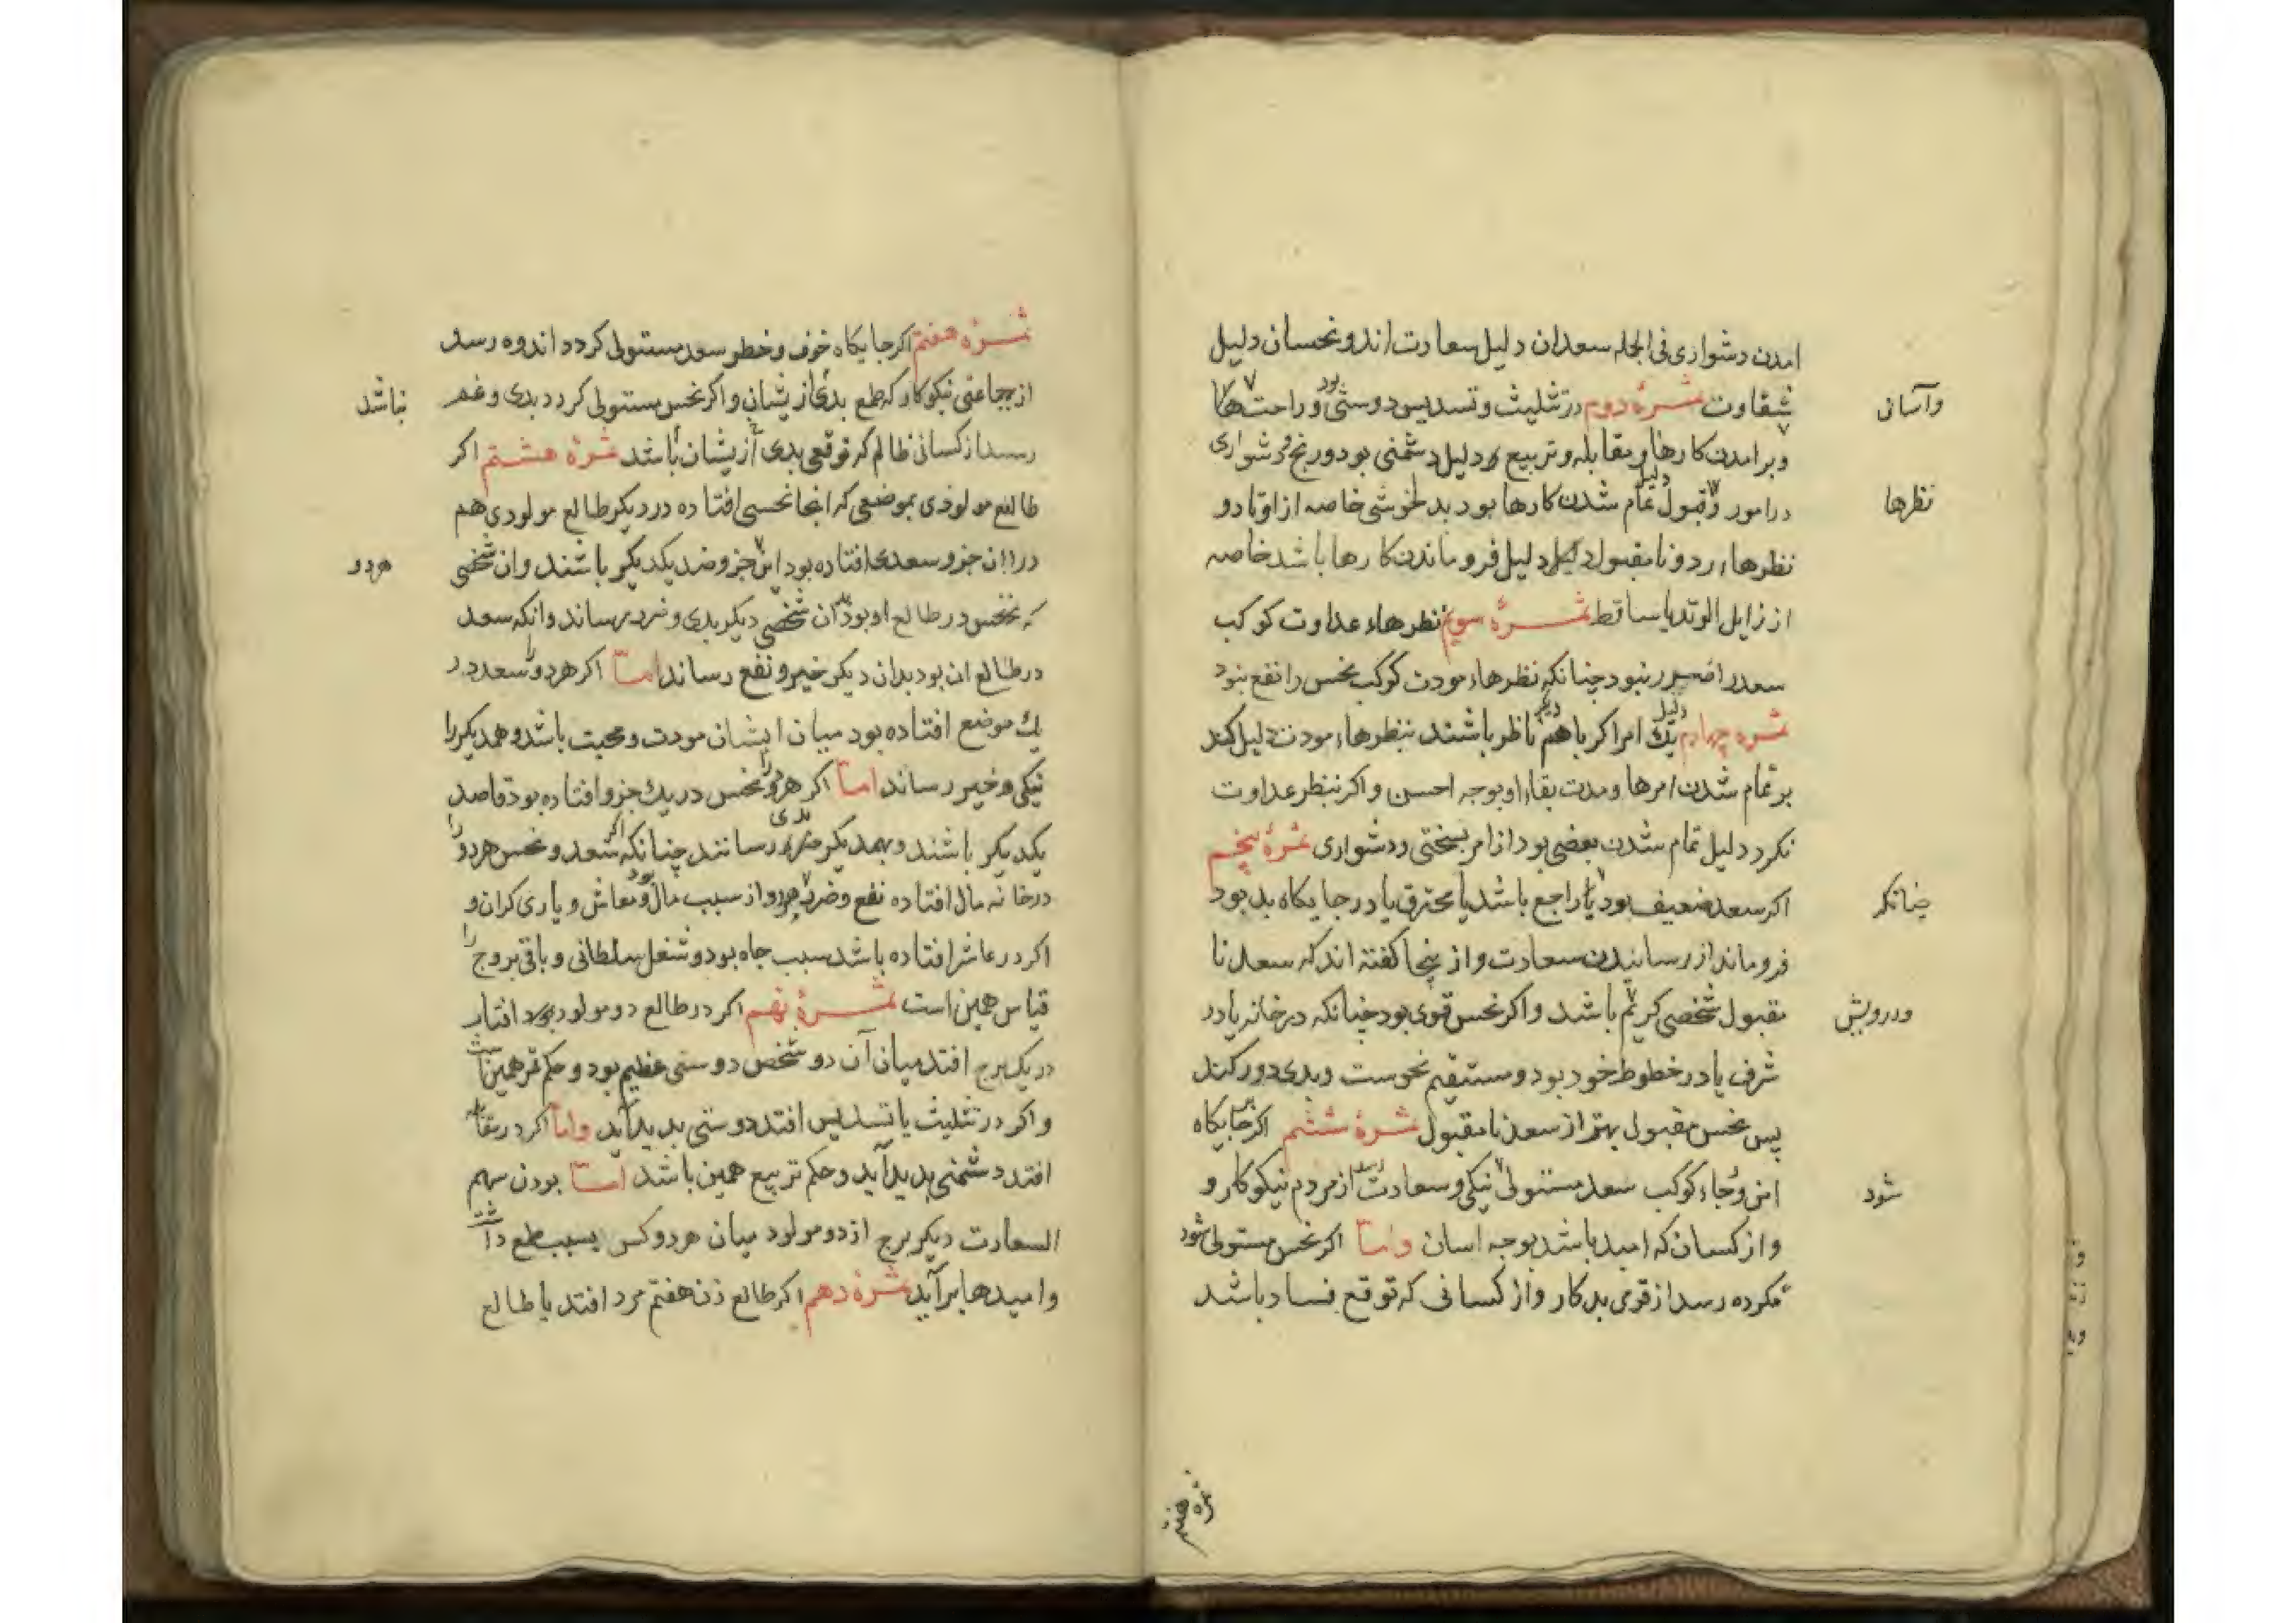 امدن دشواری فی الجمله سعدان دلیل سعادت اند و نحسان دلیل
شقاوت ثمرهٔ دوم در تثلیث و تسدیس دوستی بود و راحت ها
وآسانی
و برامدن کارها و مقابله و تربیع دلیل دشمنی بود و رنج و دشواری
در امور و قبول دلیل تمام شدن کارها بود بدلخوشی خاصه از اوتاد و
نظرها
نظرها رد و نا مقبول دلیل فروماندن کارها باشد خاصه
از زایل الوتد یا ساقط ثمرهٔ سوم نظرهاء عداوت کوکب
سعد را ضرر نبود چنانکه نظرهاء مودت کوکب نحس را نفع نبود
ثمره چهارم دلیل یک امر اکر با هم دیگر ناظر باشند بنظرهاء مودت دلیل کند
بر تمام شدن امرها و مدت بقاء او بوجه احسن و اکر بنظر عداوت
نکرد دلیل تمام شدن بعضی بود از امر بسختی و دشواری ثمرهٔ پنجم
اکر سعد ضعیف بود یا راجع باشد یا محترق یا در جایکاه بد بود
چنانکه
فروماند از رسانیدن سعادت و از ینجا کفته اند که سعد نا
مقبول شخصی کریم باشد و اکر نحس قوی بود چنانکه در خانه یا در
ودرویش
شرف یا در خطوط خود بود و مستقیم نحوست و بدی دور کند
پس نحس مقبول بهتر از سعد نا مقبول ثمرهٔ ششم اکر بر جایکاه
امن و رجاء کوکب سعد مستولی نیکی و سعادت رسد از مردم نیکوکار و
شود
و از کسان که امید باشد بوجه اسان و امّا اکر نحس مستولی شود
مکرده رسد از قومی بدکار و از کسانی که توقع فساد باشد
ثمره هفتم
ثمرهٔ هفتم اکر جایکاه خوف و خطر سعد مستولی کردد اندوه رسد
از جماعتی نیکوکار که طمع بدی از یشان و اکر نحس مستولی کردد بدی و غم
نباشد
رسد از کسانی ظالم که توقعی بدی از یشان باشد ثمرهٔ هشتم اکر
طالع مولودی بموضعی که انجا نحسی افتاده در دیکر طالع مولودی هم
در ان جزو سعدی افتاده بود این جزو ضد یکدیکر باشند و ان شخصی
هر دو
که نحس در طالع او بود ان شخصی دیکر بدی و ضرر برساند و انکه سعد
در طالع ان بود بدان دیکر خیر و نفع رساند امّا اکر هر دو را سعد در
یک موضع افتاده بود میان ایشان مودت و محبت باشد و همدیکر را
نیکی و خیر رساند امّا اکر هر دو را نحس در یک جزو افتاده بود قاصد
یکدیکر باشند و بهمدیکر بدی رسانند چنانکه اکر سعد و نحس هر دو را
در خانه مال افتاده نفع و ضرر هر دو از سبب مال بود و معاش و یاری کران و
اکر در عاشر افتاده باشد سبب جاه بود و شغل سلطانی و باقی بروج را
قیاس همین است ثمرهٔ نهم اکر در طالع دو مولود افتاب
در یک برج افتد میان آن دو شخص دوستی عظیم بود و حکم قمر همین است
و اکر در تثلیث یا تسدیس افتد دوستی پدید آید و امّا اکر در مقابله
افتد دشمنی پدید آید و حکم تربیع همین باشد امّا بودن سهم
السعادت دیکر برج از دو مولود میان هر دو کس بسبب طمع داشت
و امیدها برآید ثمرهٔ دهم اکر طالع زن هفتم مرد افتد یا طالع